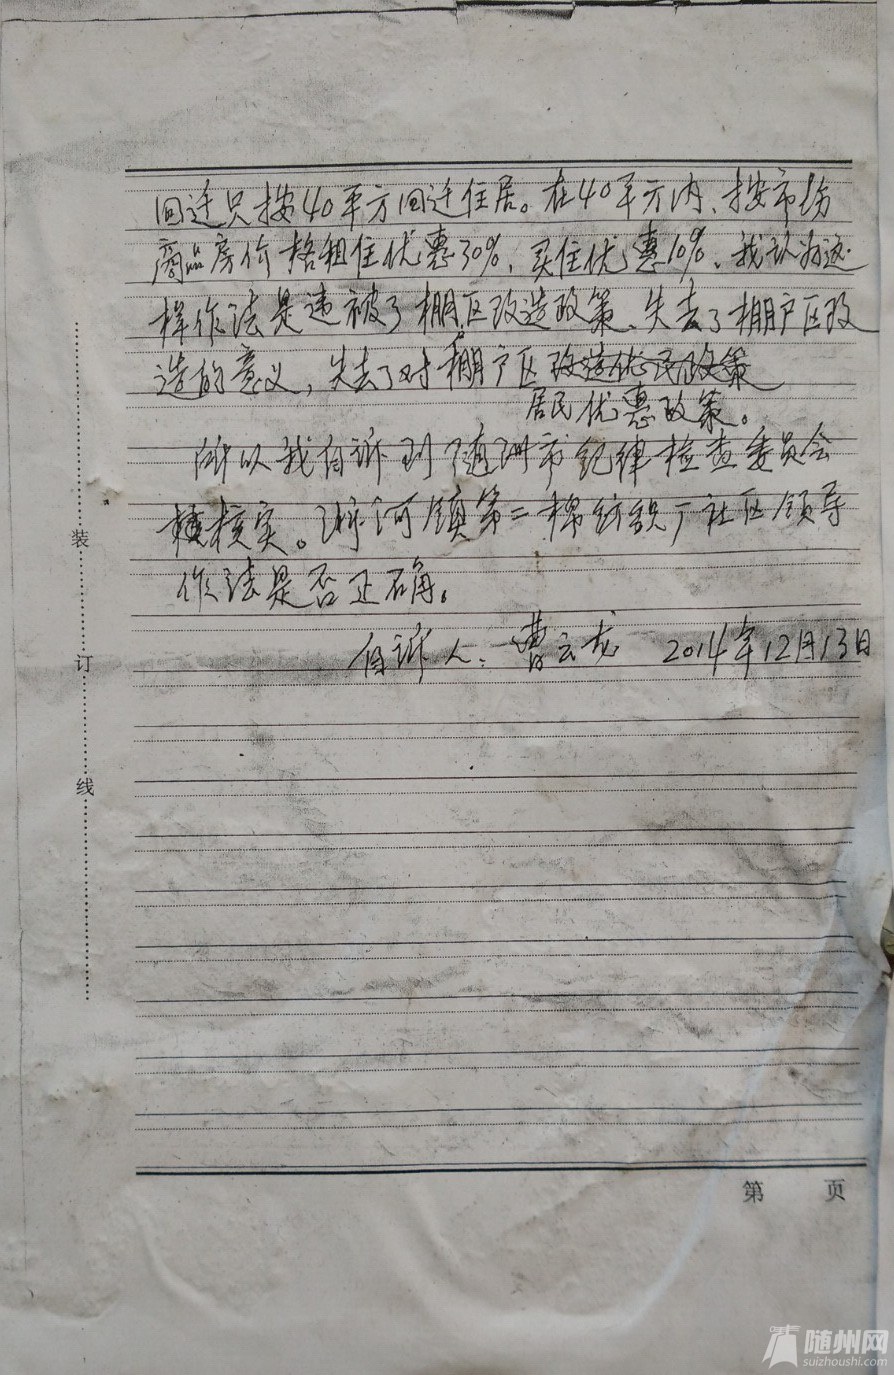 回迁只按40平方回迁住居。在40平方内、按市场
商品房价格租住优惠30%，买住优惠10%、我认为这
样作法是违被了棚区改造政策、失去了棚户区改
造的意义，失去了对棚户区改造优民政策
居民优惠政策。
所以我自诉到随州市纪律检查委员会
核实。浙河镇第二棉纺织厂社区领导
作法是否正确。
自诉人：曹云龙 2014年12月13日
装
订
线
第 页
随州网
suizhoushi.com